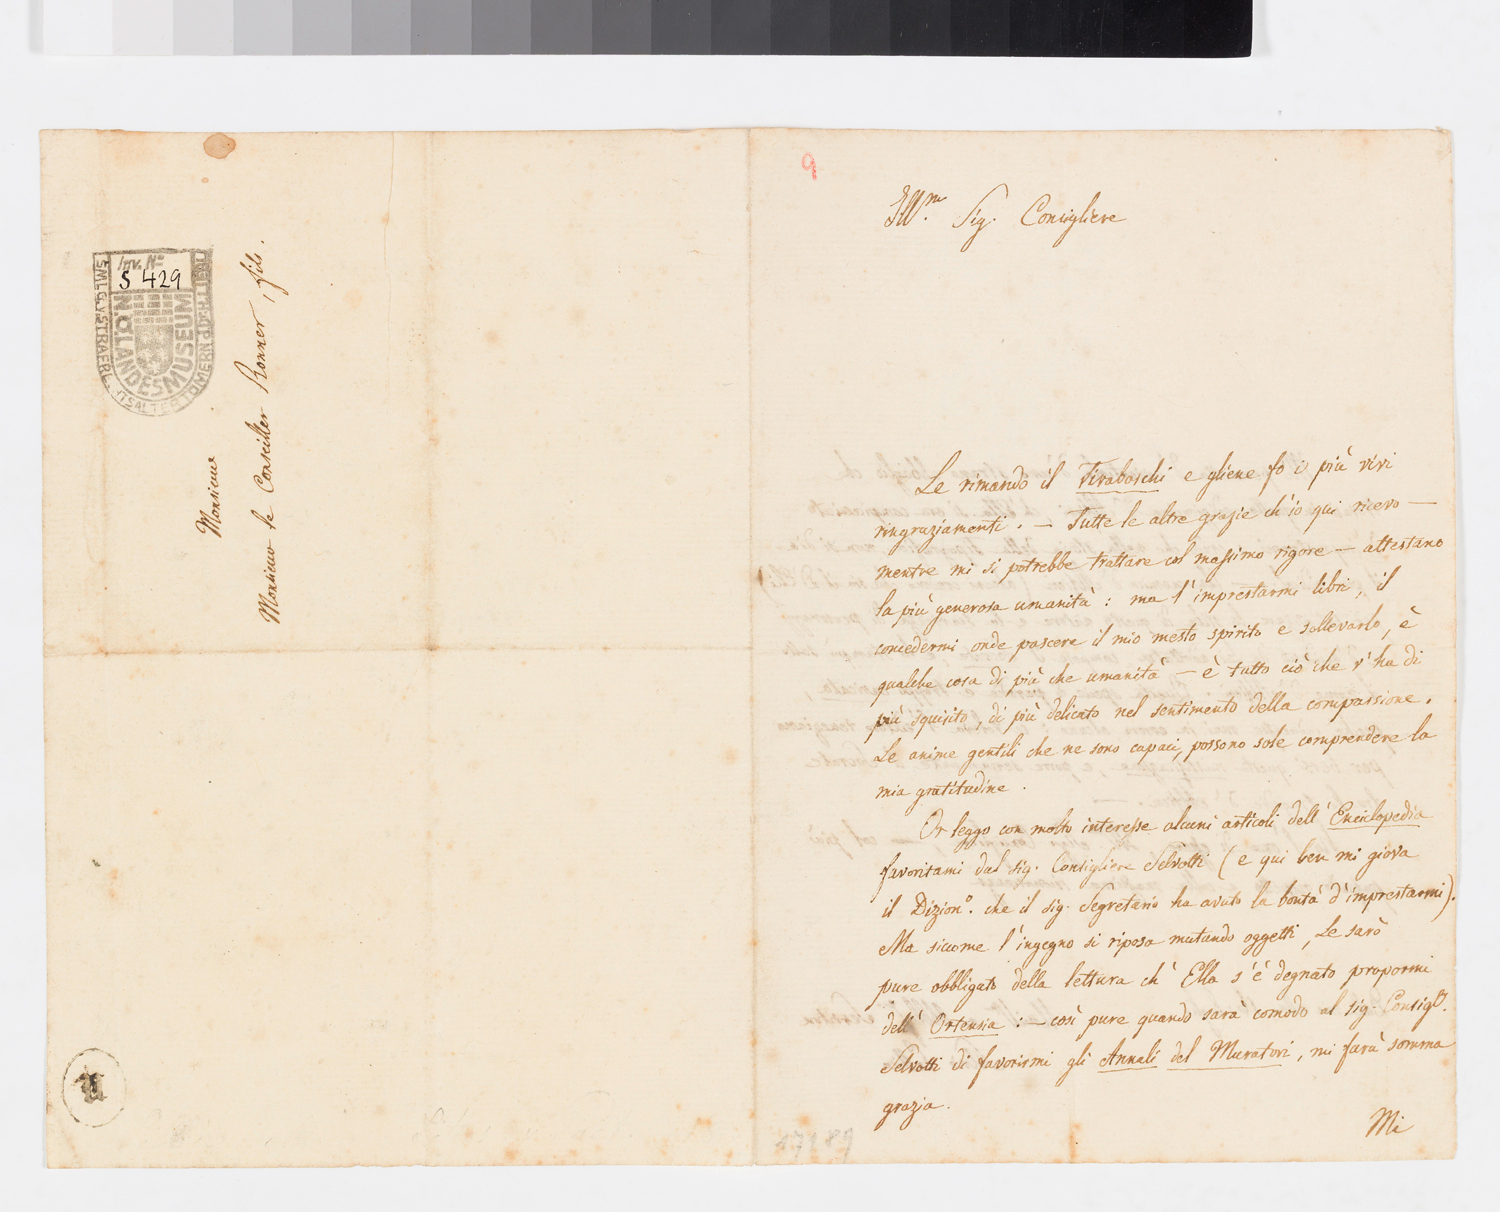 Monsieur
Monsieur le Conseiller Ronner, fils.
Inv. No
S 429
LANDESMUSEUM
9
Ill.m Sig. Consigliere
Le rimando il Tiraboschi e gliene fo i più vivi
ringraziamenti. — Tutte le altre grazie ch'io qui ricevo —
mentre mi si potrebbe trattare col massimo rigore — attestano
la più generosa umanità: ma l'imprestarmi libri, il
concedermi onde pascere il mio mesto spirito e sollevarlo, è
qualche cosa di più che umanità — è tutto ciò che v'ha di
più squisito, di più delicato nel sentimento della compassione.
Le anime gentili che ne sono capaci, possono sole comprendere la
mia gratitudine.
Or leggo con molto interesse alcuni articoli dell'Enciclopedia
favoritami dal sig. Consigliere Selvotti (e qui ben mi giova
il Dizion.o che il sig. Segretario ha avuto la bontà d'imprestarmi).
Ma siccome l'ingegno si riposa mutando oggetti, Le sarò
pure obbligato della lettura ch'Ella s'è degnato propormi
dell'Ortensia: — così pure quando sarà comodo al sig. Consig.e
Selvotti di favorirmi gli Annali del Muratori, mi farà somma
grazia.
Mi